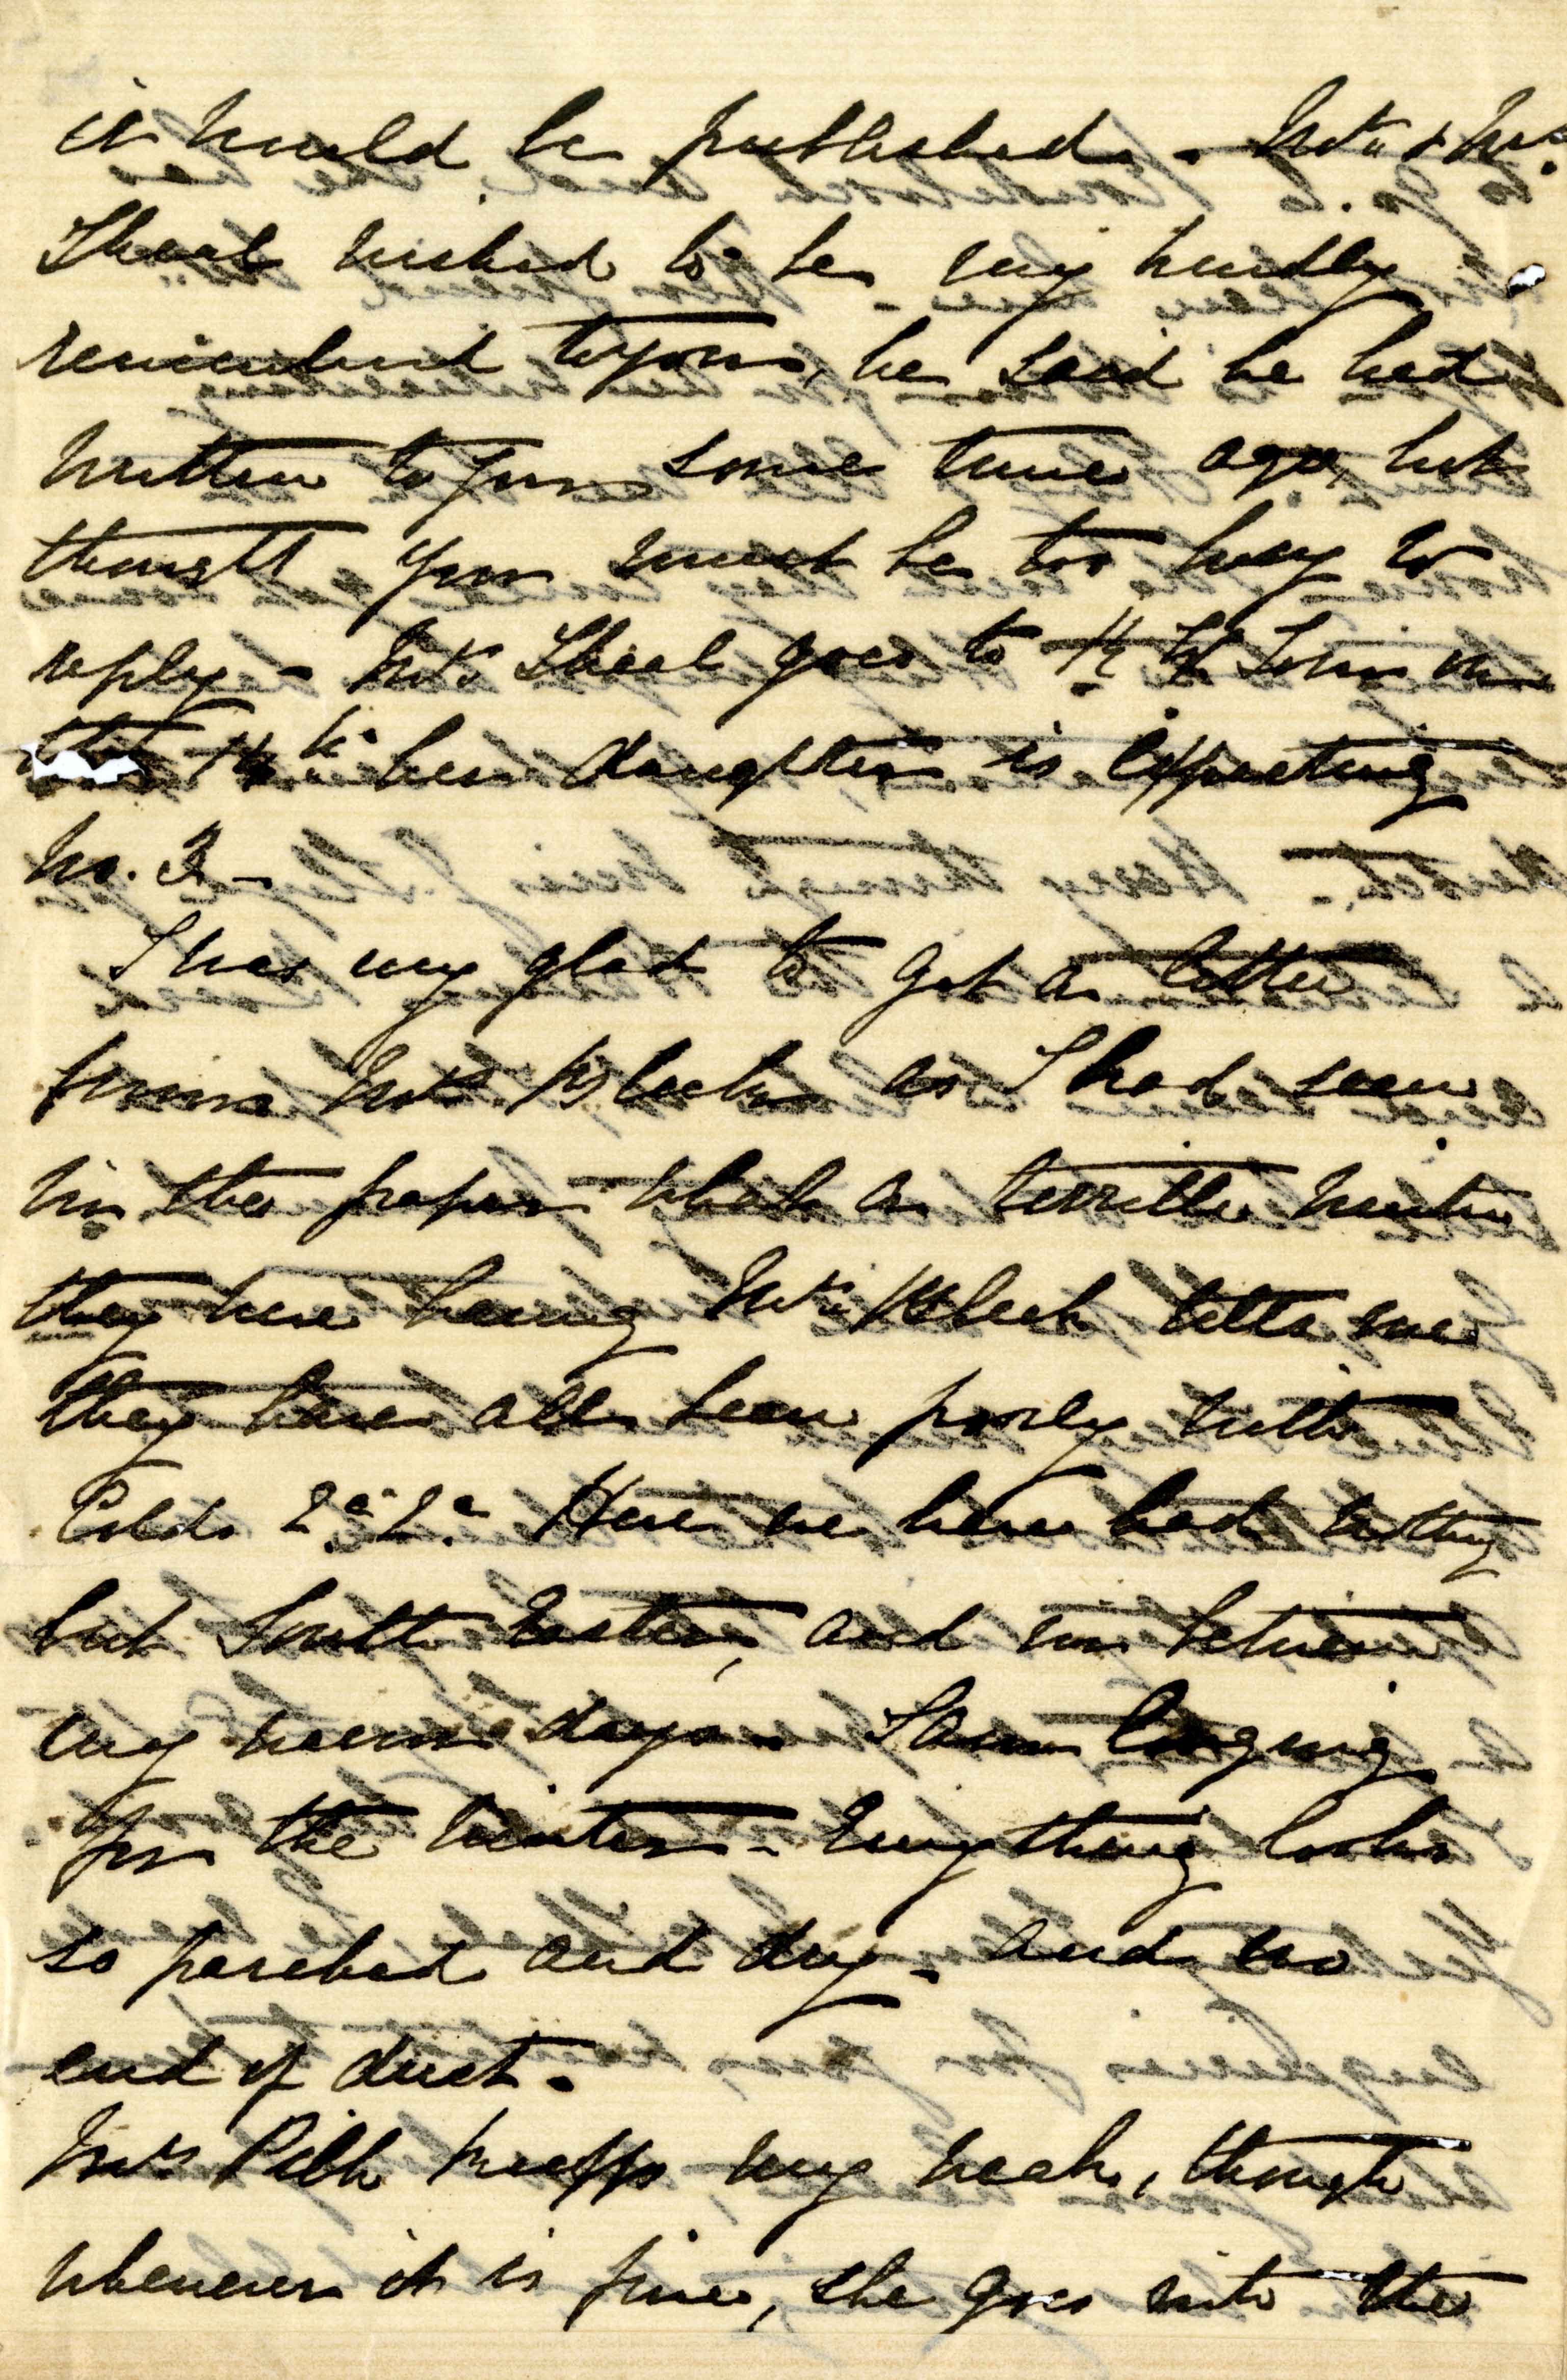 it would be published. - Mrs & Mr.
Theal wished to be very kindly
remembered to you, he said he had
written to you some time ago, but
thought you must be too busy to
reply - Mrs Theal goes to St John on
the 14th her daughter is expecting
No. 3 -
I was very glad to get a letter
from Mrs Bleek as I had seen
in the papers what a terrible winter
they were having Mrs Bleek tells me
they have all been poorly with
Colds &c &c. Here we have had nothing
but South Easters, and in between
very warm days - I am longing
for the Winter - Everything looks
so parched and dry - and no
end of dust -
Mrs keeps very weak, though
whenever it is fine, she goes into the